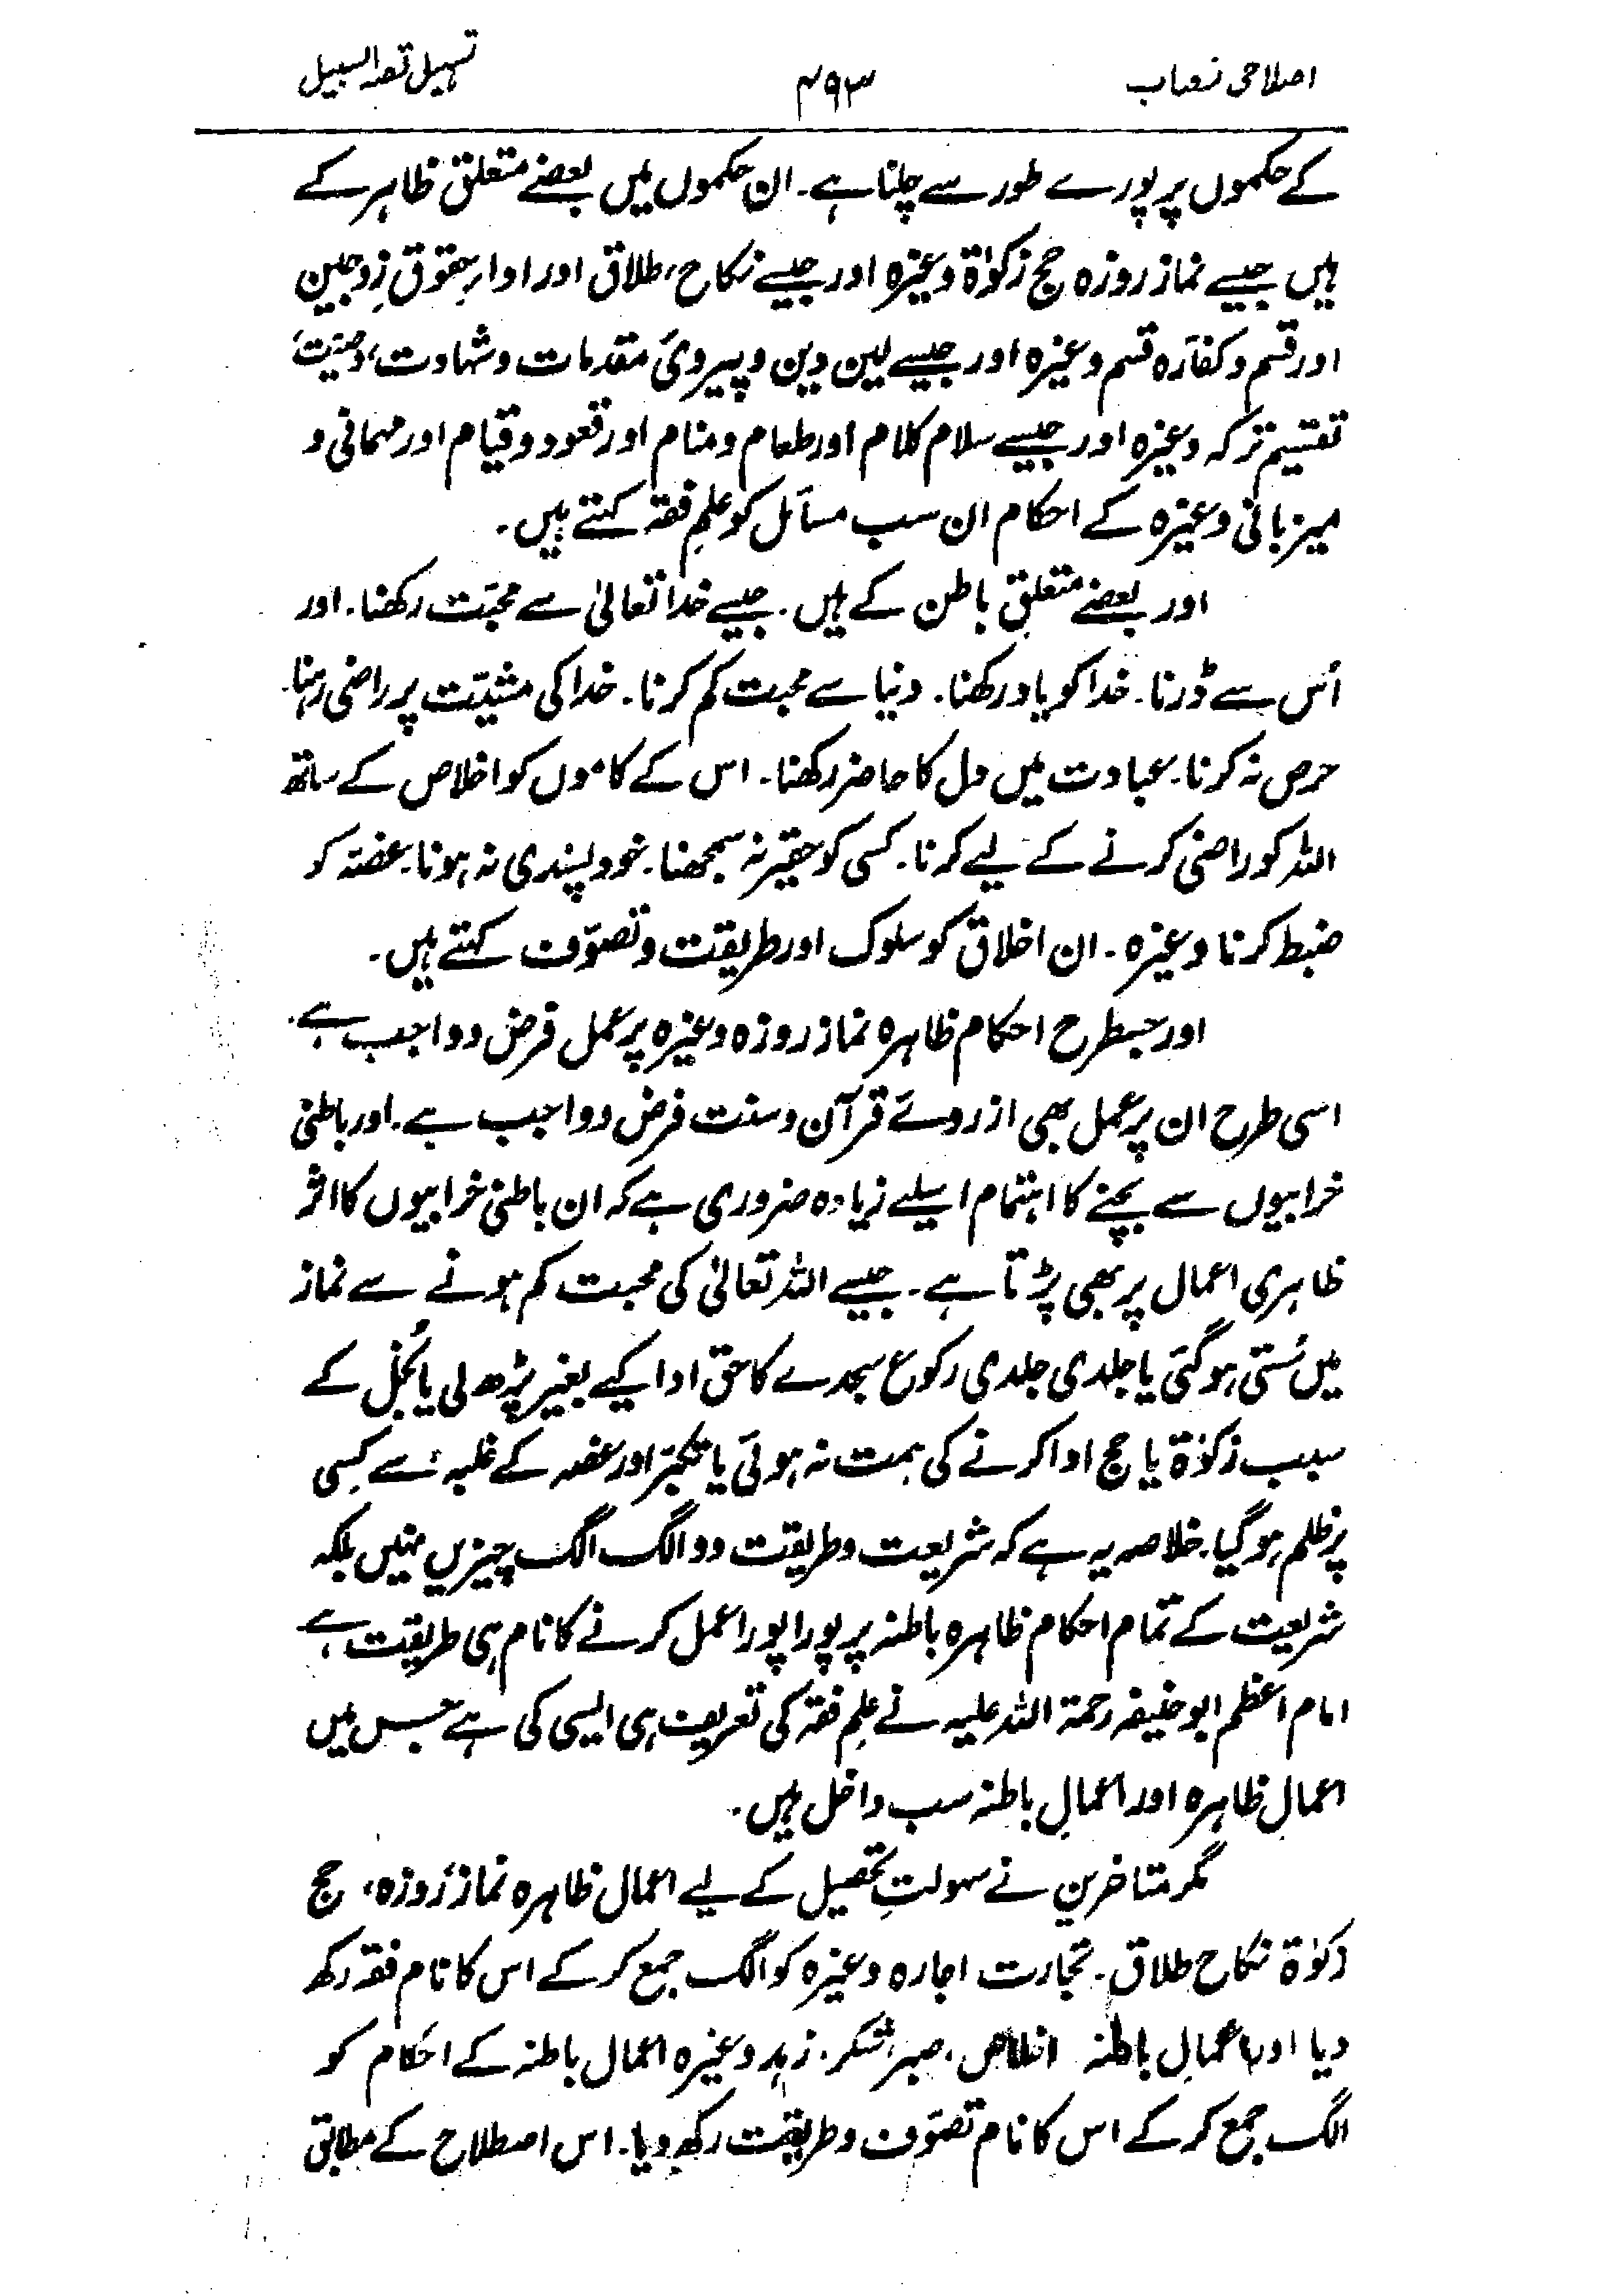 اصلاحی نصاب
۴۹۳
تسہیل قصد السبیل
کے حکموں پر پورے طور سے چلنا ہے۔ ان حکموں میں بعضے متعلق ظاہر کے
ہیں جیسے نماز روزہ حج زکوٰۃ وغیرہ اور جیسے نکاح، طلاق اور اداءِ حقوق زوجین
اور قسم و کفارہ قسم وغیرہ اور جیسے لین دین و پیرویٔ مقدمات و شہادت، وصیت،
تقسیم ترکہ وغیرہ اور جیسے سلام کلام اور طعام و منام اور قعود و قیام اور مہمانی و
میزبانی وغیرہ کے احکام ان سب مسائل کو علمِ فقہ کہتے ہیں۔
اور بعضے متعلق باطن کے ہیں۔ جیسے خدا تعالیٰ سے محبّت رکھنا۔ اور
اُس سے ڈرنا۔ خدا کو یاد رکھنا۔ دنیا سے محبت کم کرنا۔ خدا کی مشیّت پر راضی رہنا۔
حرص نہ کرنا۔ عبادت میں دل کا حاضر رکھنا۔ اس کے کاموں کو اخلاص کے ساتھ
اللہ کو راضی کرنے کے لیے کرنا۔ کسی کو حقیر نہ سمجھنا۔ خود پسندی نہ ہونا۔ غصّہ کو
ضبط کرنا وغیرہ۔ ان اخلاق کو سلوک اور طریقت و تصوّف کہتے ہیں۔
اور جسطرح احکام ظاہرہ نماز روزہ وغیرہ پر عمل فرض و واجب ہے۔
اسی طرح ان پر عمل بھی از روئے قرآن و سنت فرض و واجب ہے۔ اور باطنی
خرابیوں سے بچنے کا اہتمام اسلیے زیادہ ضروری ہے کہ ان باطنی خرابیوں کا اثر
ظاہری اعمال پر بھی پڑتا ہے۔ جیسے اللہ تعالیٰ کی محبت کم ہونے سے نماز
میں سُستی ہو گئی یا جلدی جلدی رکوع سجدے کا حق ادا کیے بغیر پڑھ لی یا بُخل کے
سبب زکوٰۃ یا حج ادا کرنے کی ہمت نہ ہوئی یا تکبّر اور غصہ کے غلبہ سے کِسی
پر ظلم ہو گیا۔ خلاصہ یہ ہے کہ شریعت و طریقت دو الگ الگ چیزیں نہیں بلکہ
شریعت کے تمام احکام ظاہرہ باطنہ پر پورا پورا عمل کرنے کا نام ہی طریقت ہے
امام اعظم ابو حنیفہ رحمۃ اللہ علیہ نے علمِ فقہ کی تعریف ہی ایسی کی ہے جس میں
اعمالِ ظاہرہ اور اعمالِ باطنہ سب داخل ہیں۔
مگر متاخرین نے سہولتِ تحصیل کے لیے اعمال ظاہرہ نماز روزہ، حج
زکوٰۃ نکاح طلاق۔ تجارت اجارہ وغیرہ کو الگ جمع کر کے اس کا نام فقہ رکھ
دیا اور اعمالِ باطنہ اخلاص، صبر، شکر، زہد وغیرہ اعمال باطنہ کے احکام کو
الگ جمع کر کے اس کا نام تصوّف و طریقت رکھ دیا۔ اس اصطلاح کے مطابق